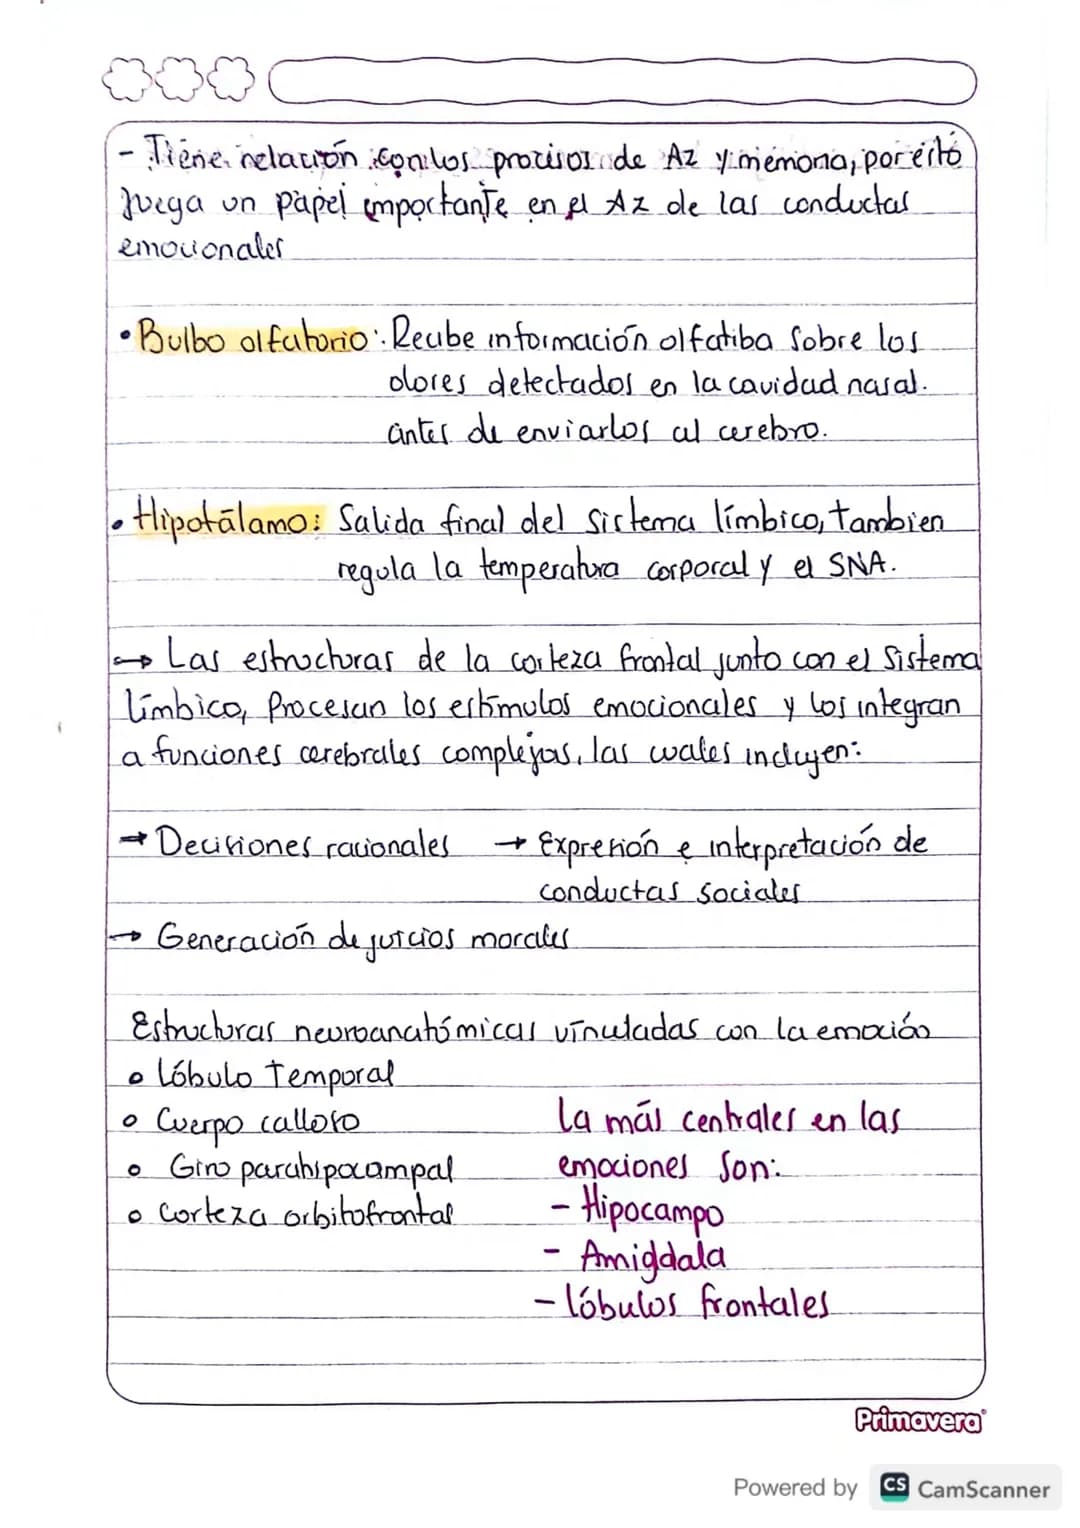 - Tiene relación con los procesos de Az y memoria, por esto
Juega un papel importante en el Az de las conductas
emocionales
• Bulbo olfatorio: Recibe información olfatiba sobre los
olores detectados en la cavidad nasal.
antes de enviarlos al cerebro.
• Hipotálamo: Salida final del sistema límbico, tambien
regula la temperatura corporal y el SNA.
→ Las estructuras de la corteza frontal junto con el Sistema
límbico, Procesan los estímulos emocionales y los integran
a funciones cerebrales complejas, las cuales incluyen:
→ Decisiones racionales → Expresión e interpretación de
conductas sociales
→ Generación de juicios morales
Estructuras neuroanatómicas vinculadas con la emoción
o Lóbulo Temporal
o Cuerpo calloso
o Giro parahipocampal
o Corteza orbitofrontal
La más centrales en las
emociones Son:
- Hipocampo
- Amigdala
- lóbulos frontales
Primavera
Powered by CS CamScanner